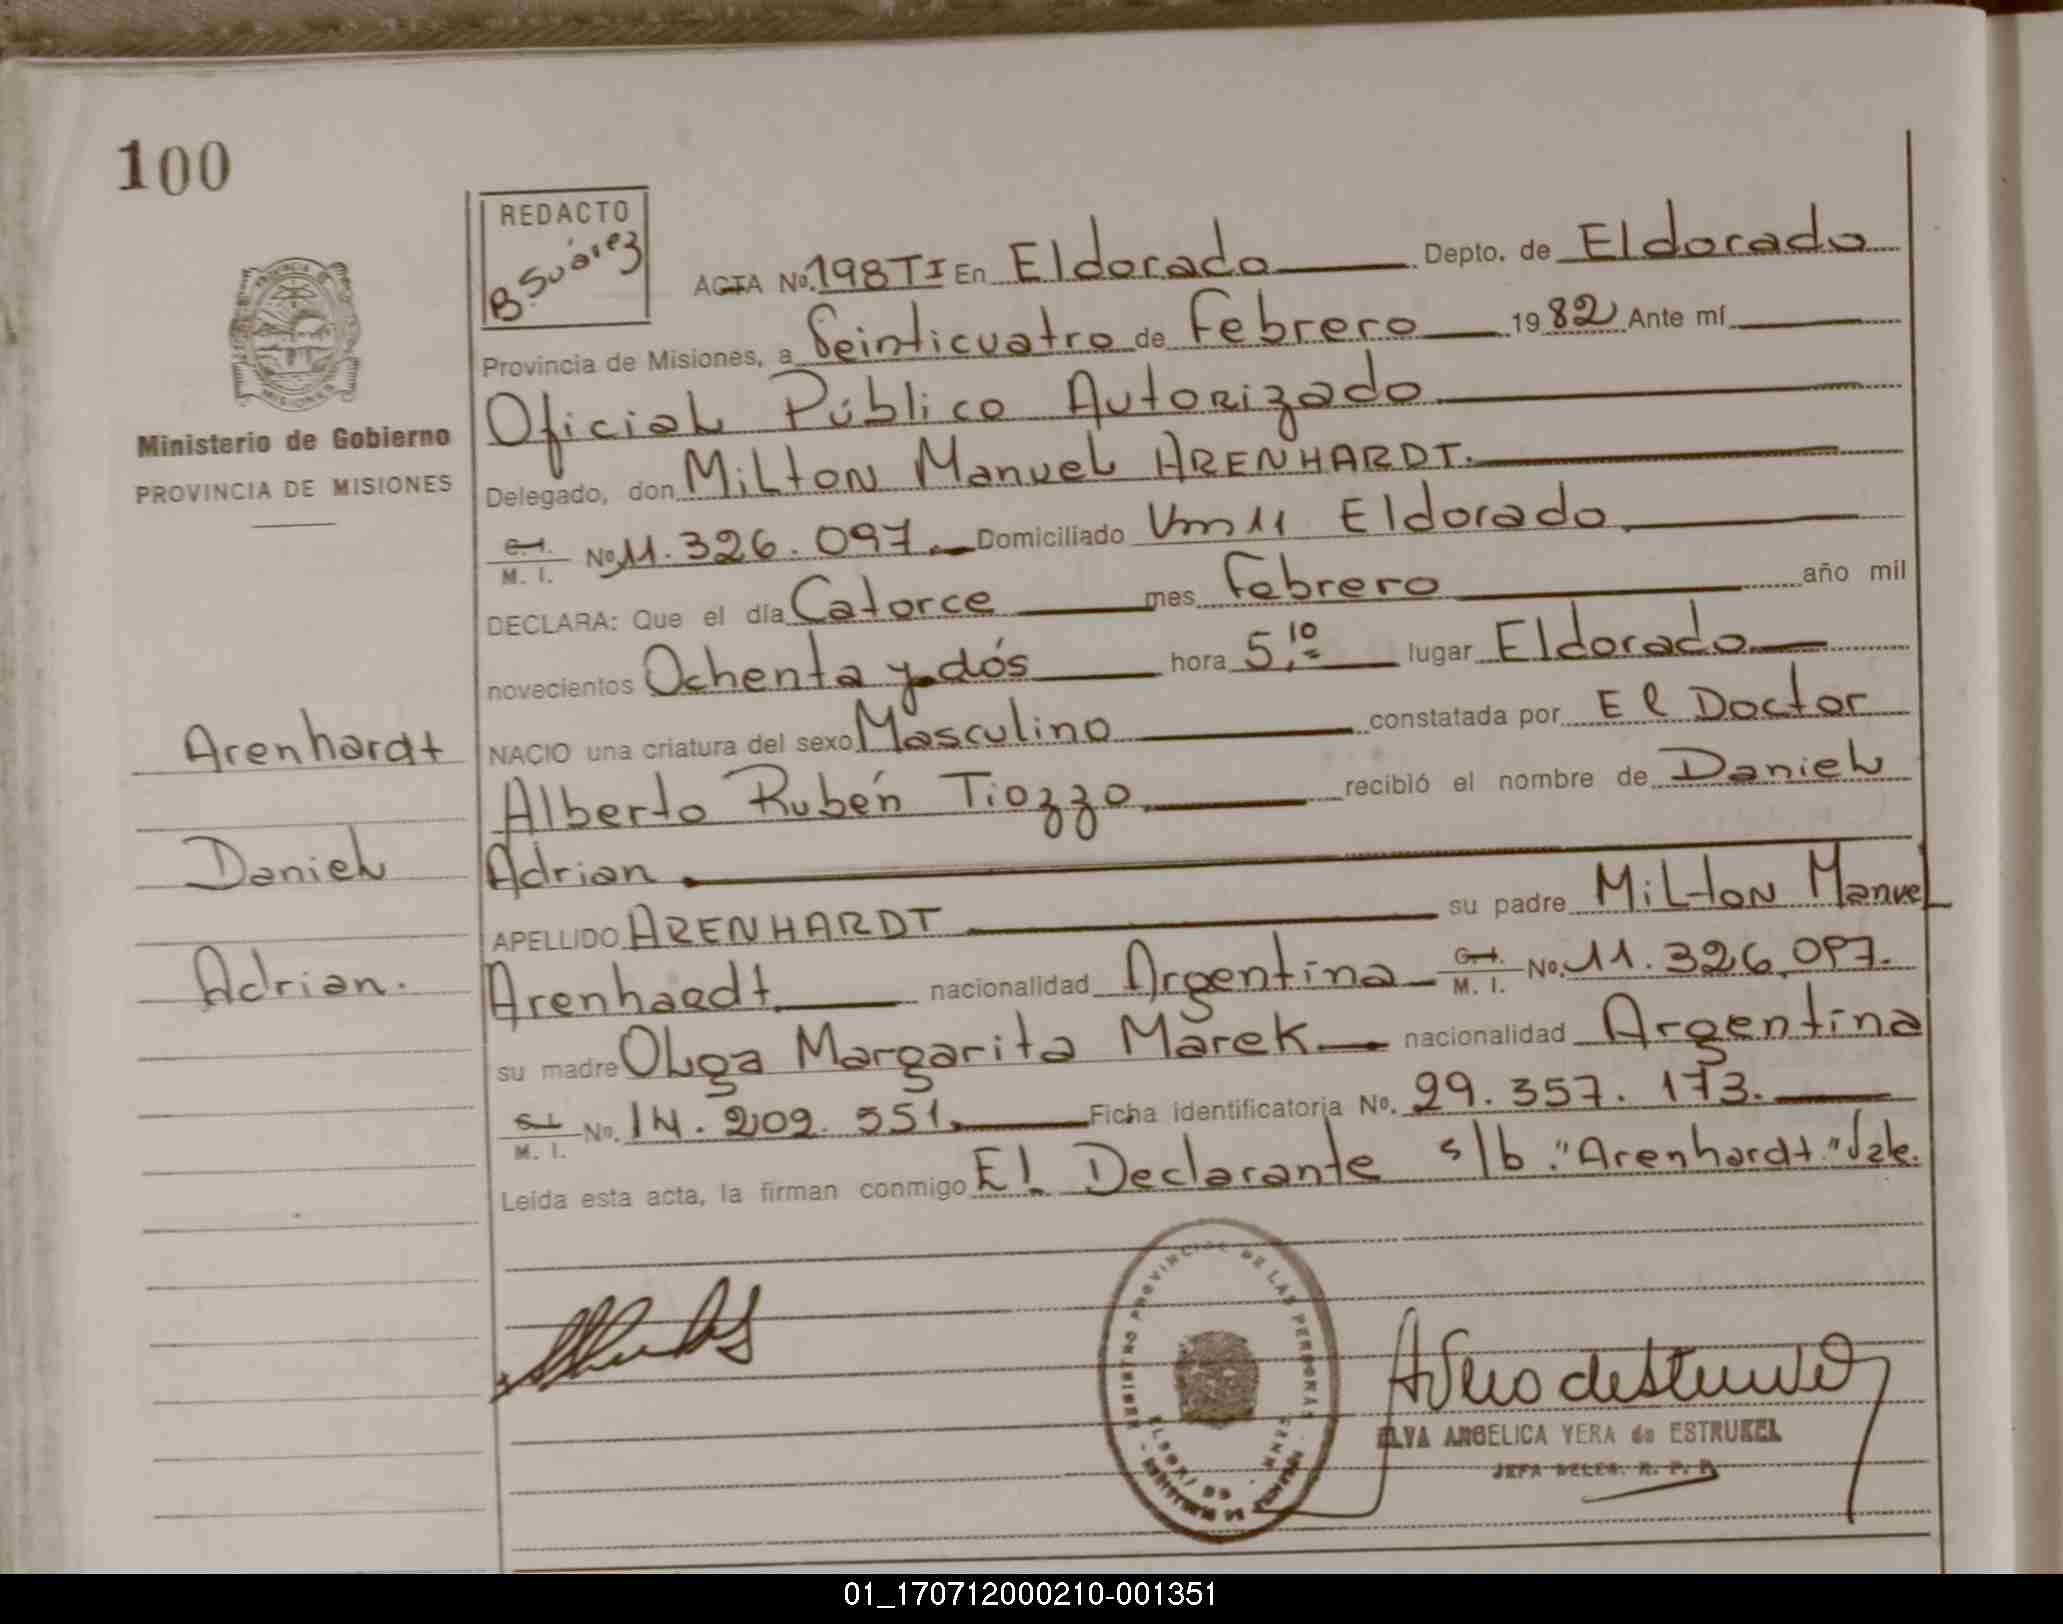 100
REDACTO
B. Suárez
ACTA No. 198 TI En Eldorado Depto. de Eldorado
Provincia de Misiones, a Veinticuatro de Febrero 1982 Ante mí
Oficial Público Autorizado
Ministerio de Gobierno
PROVINCIA DE MISIONES
Delegado, don Milton Manuel ARENHARDT.
C.I. M. I. No 11.326.097. Domiciliado Km 11 Eldorado.
DECLARA: Que el día Catorce mes Febrero año mil
novecientos Ochenta y dós hora 5,10 lugar Eldorado
Arenhardt
NACIO una criatura del sexo Masculino constatada por El Doctor
Alberto Rubén Tiozzo recibió el nombre de Daniel
Daniel
Adrian
APELLIDO ARENHARDT su padre Milton Manuel
Adrian.
Arenhardt nacionalidad Argentina C.I. M. I. No. 11.326.097.
su madre Olga Margarita Marek nacionalidad Argentina
C.I. M. I. No. 14.209.351. Ficha identificatoria No. 29.357.173.
Leída esta acta, la firman conmigo El Declarante s/b. "Arenhardt." Vale.
REGISTRO PROVINCIAL DE LAS PERSONAS
ELVA ANGELICA VERA de ESTRUKEL
JEFA DELEG. R. P. P.
01_170712000210-001351